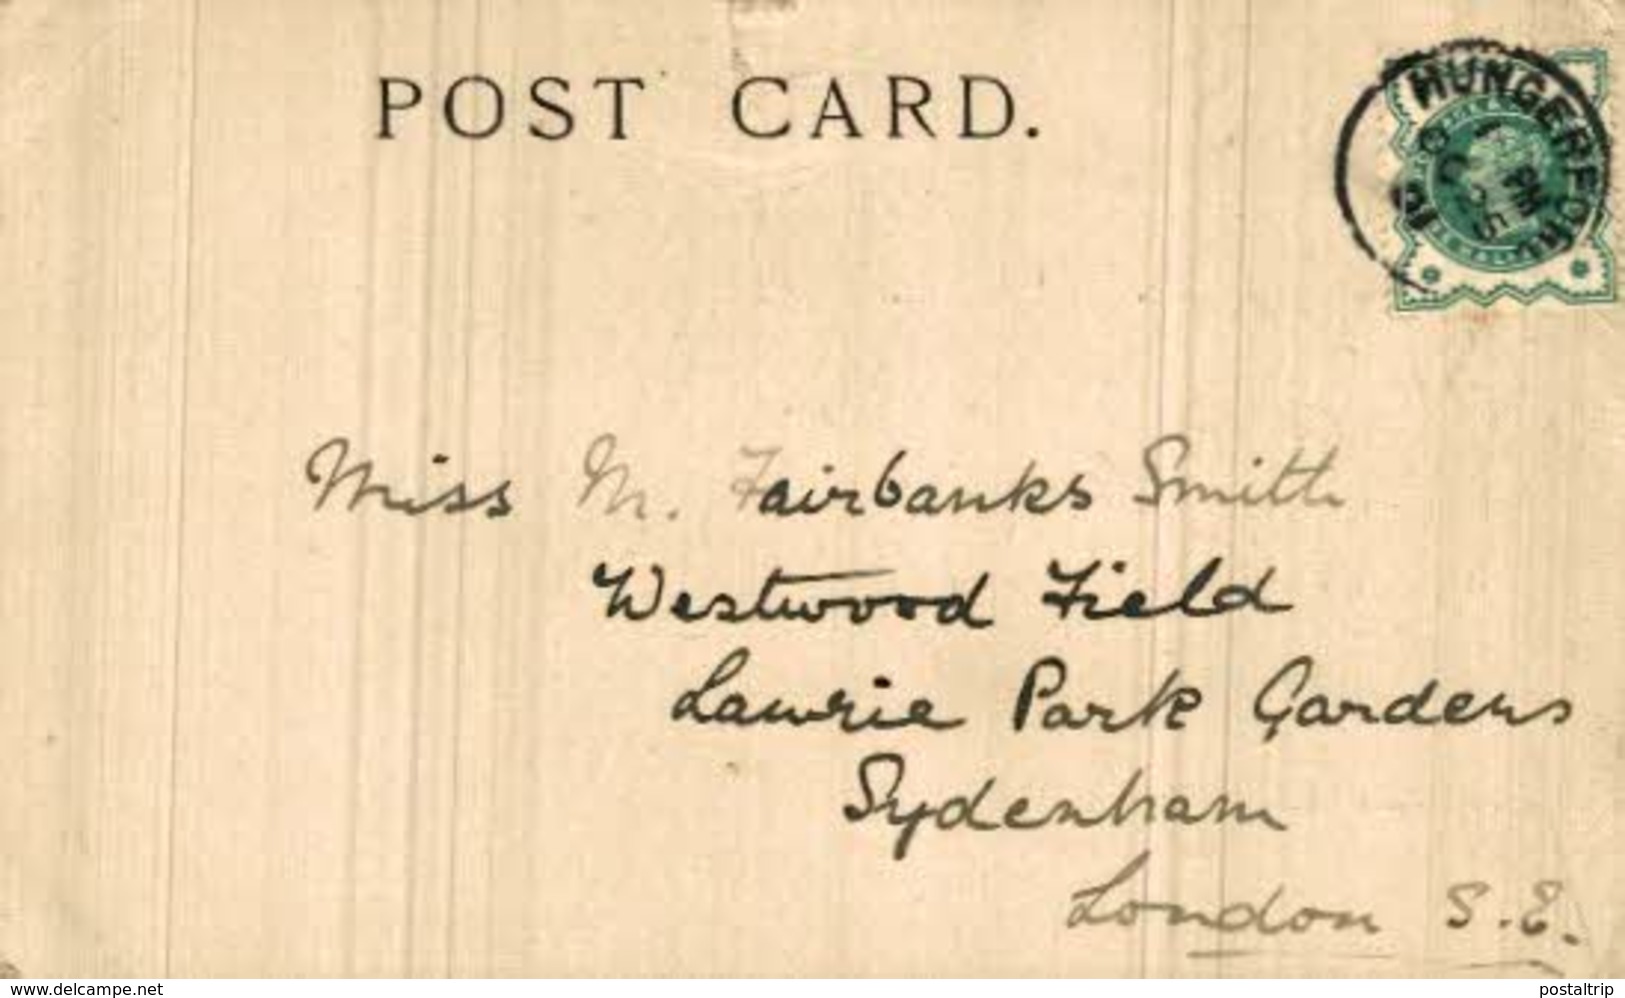 POST CARD.
HUNGERFORD
PM
OC 25
01
Miss M. Fairbanks Smith
Westwood Field
Lawrie Park Gardens
Sydenham
London S.E.
www.delcampe.net postaltrip